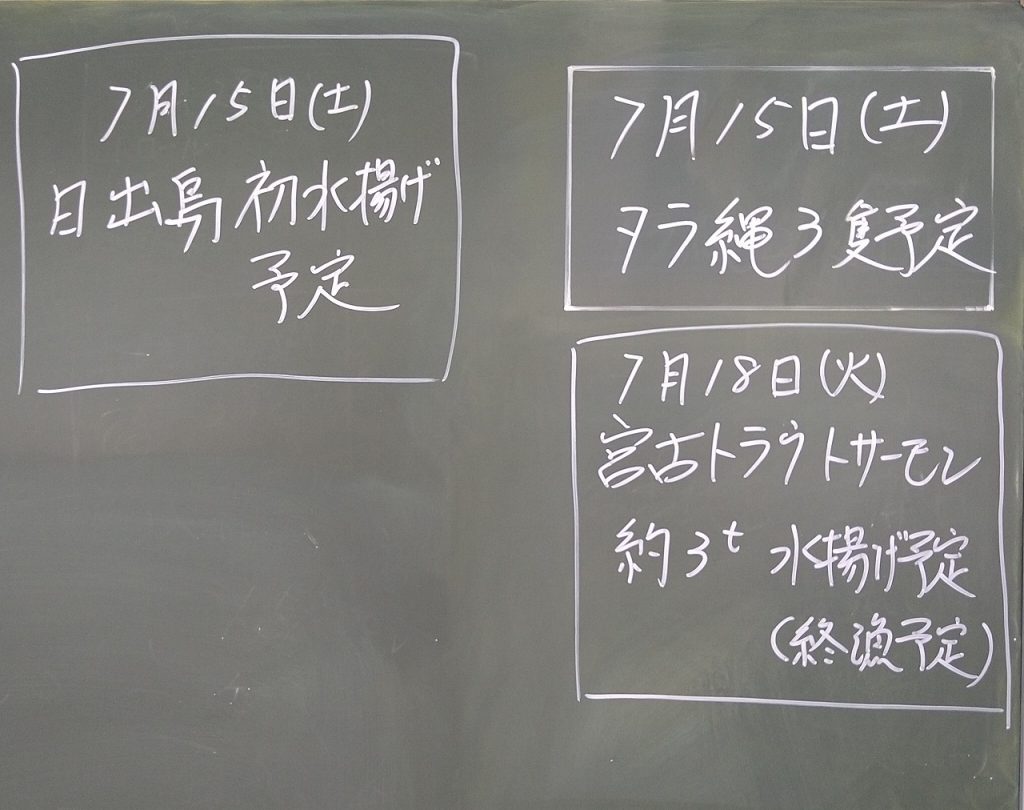 7月15日(土)
日出島 初水揚げ
予定
7月15日(土)
タラ縄3隻予定
7月18日(火)
宮古トラウトサーモン
約3t 水揚げ予定
(終漁予定)